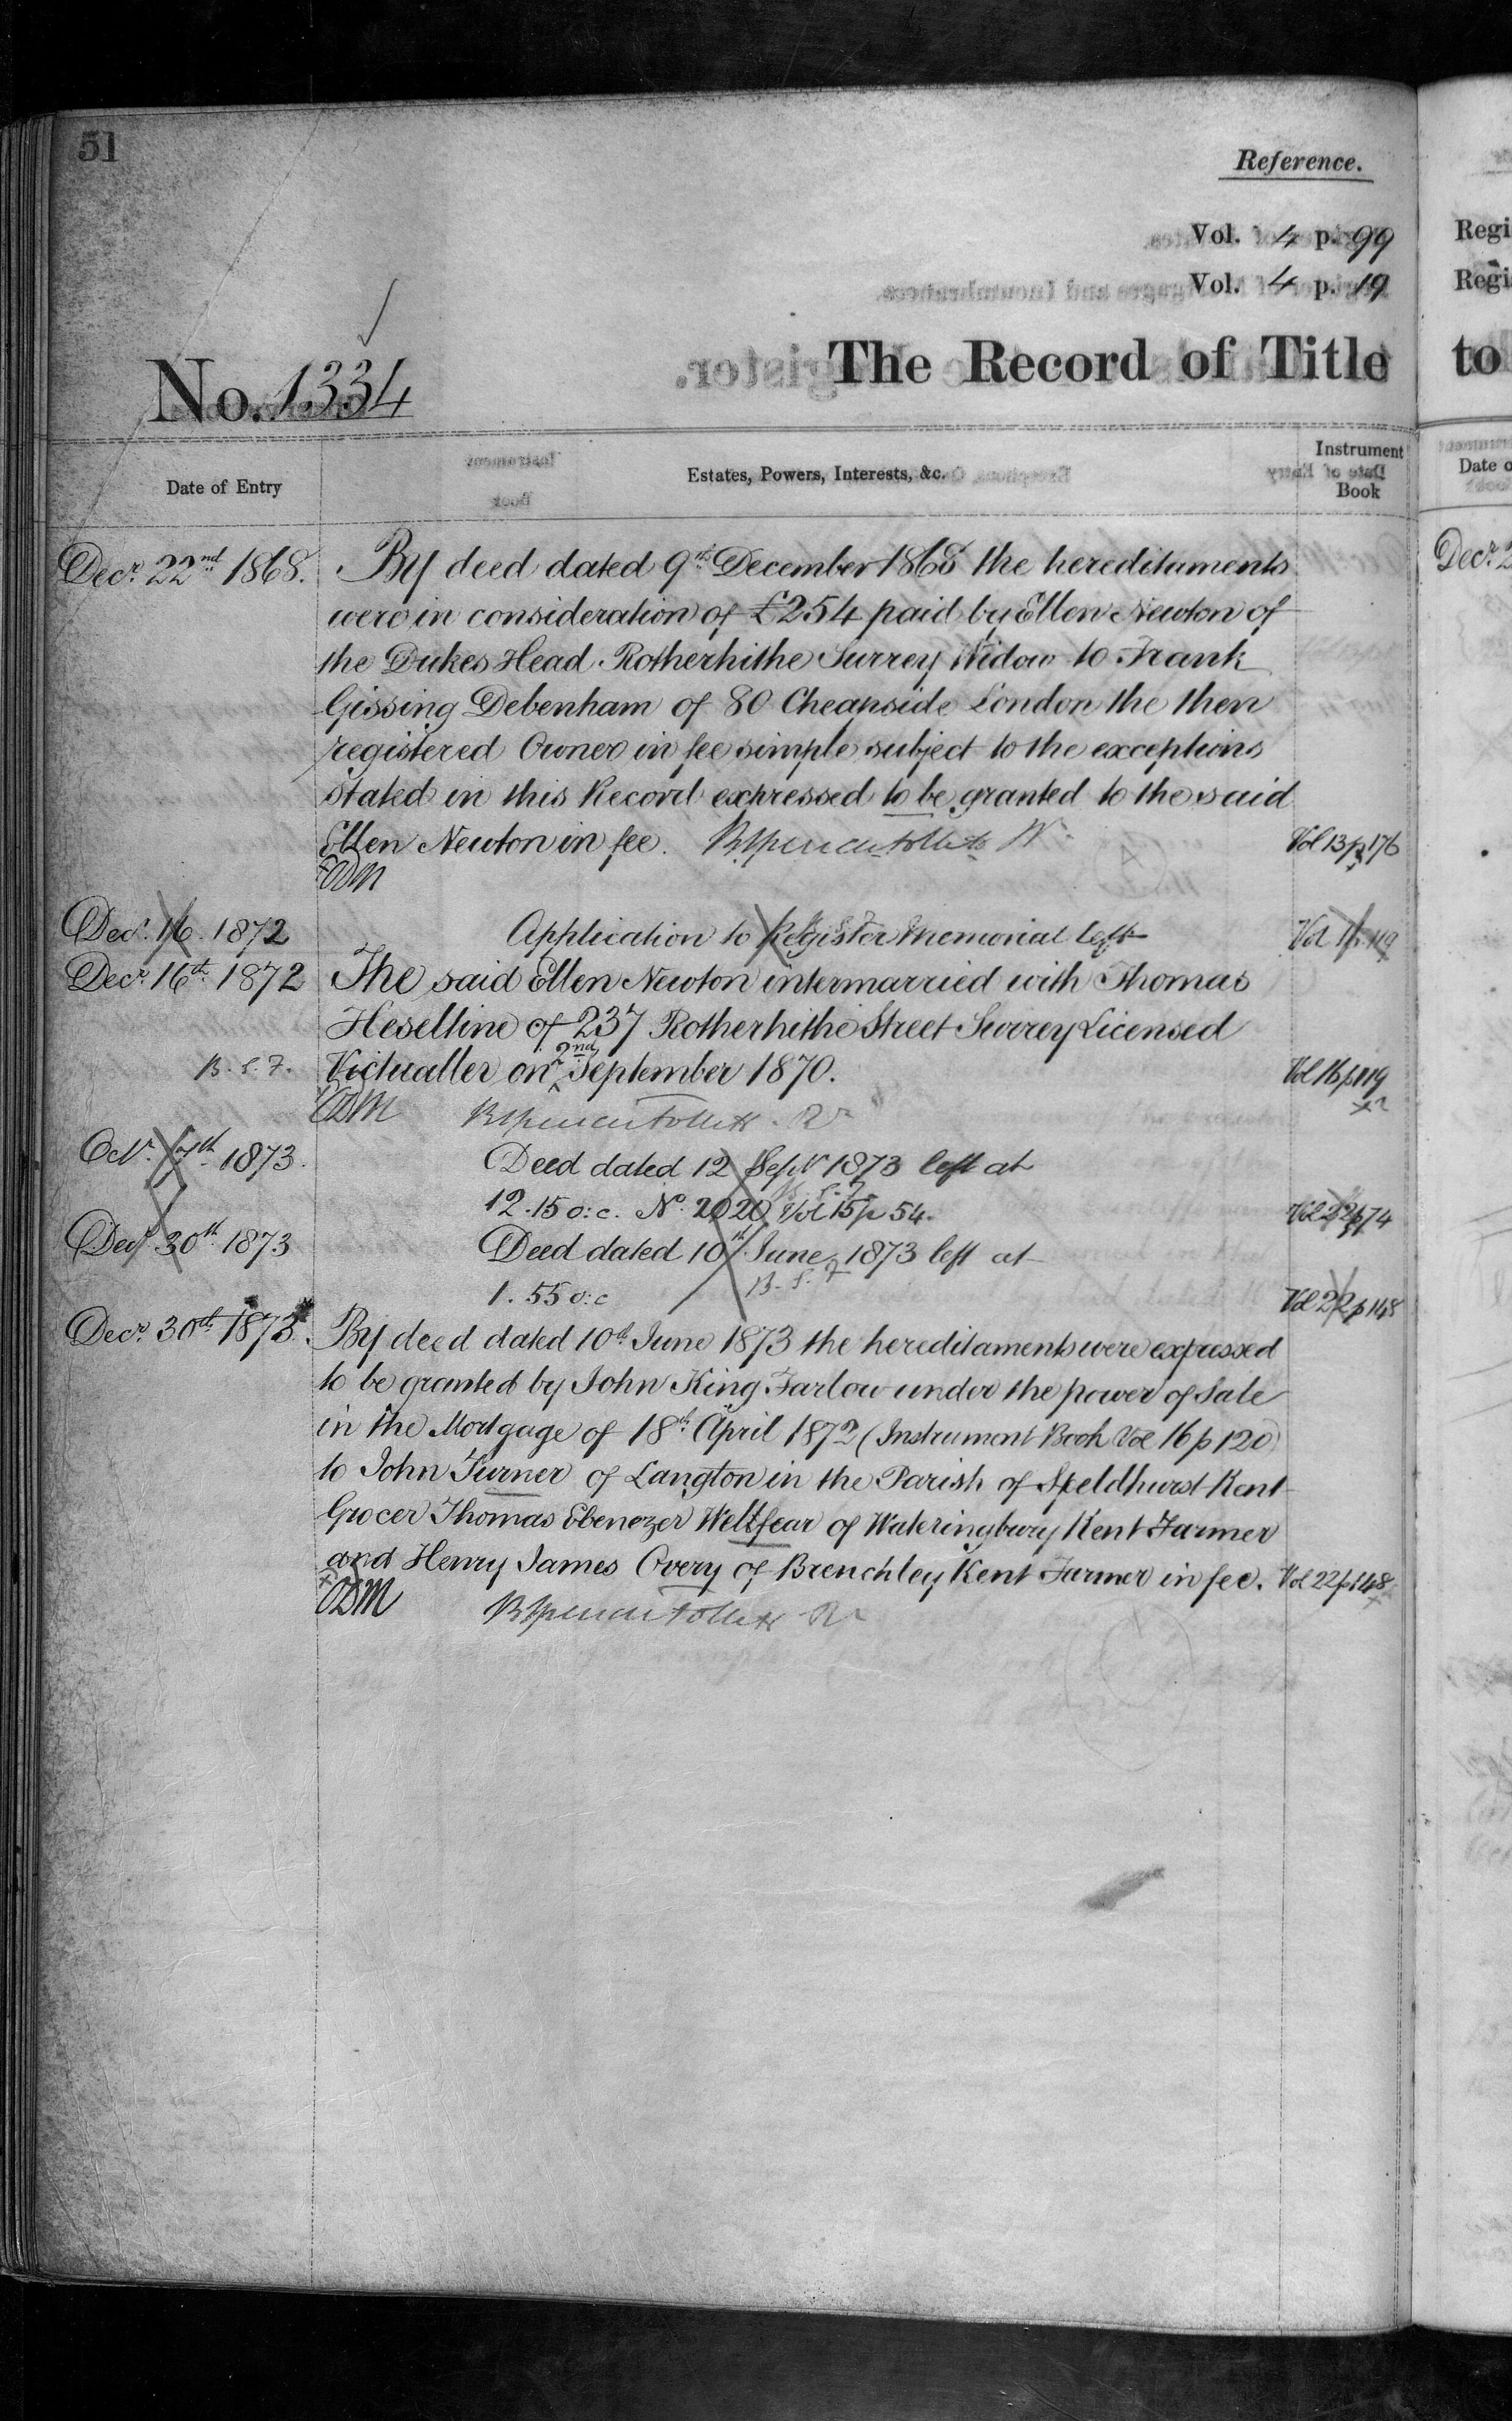 51
Reference.
Vol. 4 p. 99
Vol. 4 p. 19
No. 1334
The Record of Title
Date of Entry
Estates, Powers, Interests, &c.
Instrument
Book
Decr. 22nd 1868. By deed dated 9th December 1868 the hereditaments
were in consideration of £254 paid by Ellen Newton of
the Dukes Head Rotherhithe Surrey Widow to Frank
Gissing Debenham of 80 Cheapside London the then
registered Owner in fee simple subject to the exceptions
stated in this Record expressed to be granted to the said
Ellen Newton in fee. Vol 13 p 176
Decr. 16. 1872 Application to Register Memorial left Vol 16 p. 119
Decr. 16th 1872 The said Ellen Newton intermarried with Thomas
Heseltine of 237 Rotherhithe Street Surrey Licensed
B. S. F. Victualler on 2nd September 1870. Vol 16 p 119
Oct. 7th 1873. Deed dated 12 Sept 1873 left at
12.15 o:c. No. 2020 Vol 15 p 54. Vol 22 p 74
Decr 30th 1873 Deed dated 10th June 1873 left at
1.55 o:c B. S. F Vol 22 p 148
Decr. 30th 1873. By deed dated 10th June 1873 the hereditaments were expressed
to be granted by John King Farlow under the power of Sale
in the Mortgage of 18th April 1872 (Instrument Book Vol 16 p 120)
to John Turner of Langton in the Parish of Speldhurst Kent
Grocer Thomas Ebenezer Wellfear of Wateringbury Kent Farmer
and Henry James Overy of Brenchley Kent Farmer in fee. Vol 22 p 148
Regi
Regi
to
Date o
Decr. 2